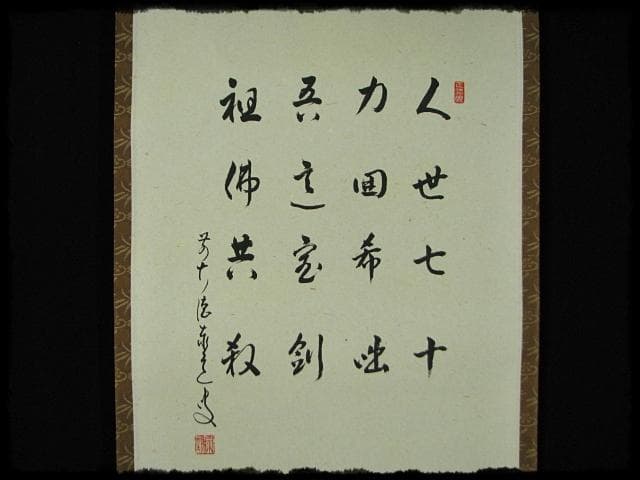 人世七十
力囲希咄
吾這宝剣
祖佛共殺
前大徳